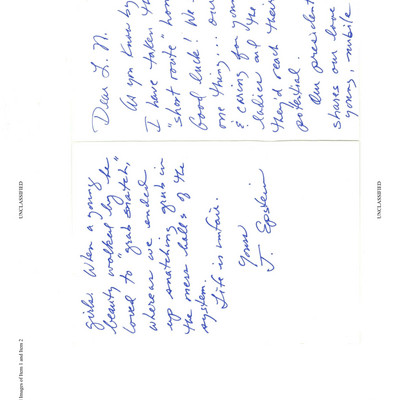 Dear L. N.
As you know by
I have taken th
"short route" hom
Good luck! We
one thing... our
& caring for youn
ladies and the
they'd reach thei
potential.
Our president
shares our love
young, nubile
girls. When a young
beauty walked by he
loved to "grab snatch,"
whereas we ended
up snatching grub in
the mess halls of the
system.
Life is unfair.
Yours
J. Epstein
UNCLASSIFIED
UNCLASSIFIED
Images of Item 1 and Item 2